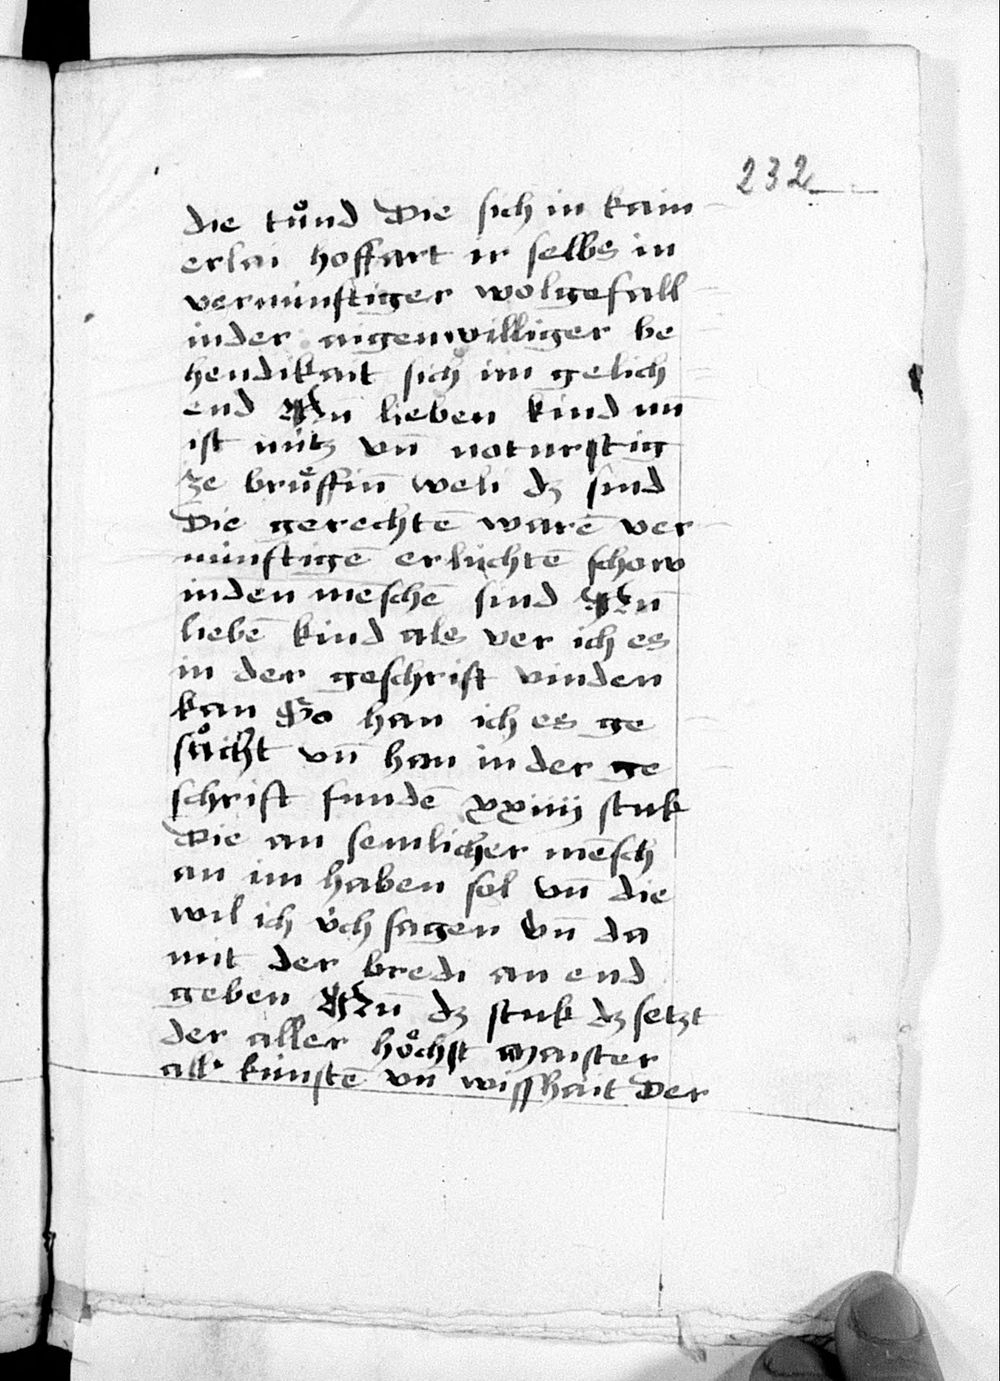 232
die tuͦnd Die sich in kain
erlai hoffart ir selbs in
vernúnftiger wolgefall
inder aigenwilliger be
hendikait sich im gelich
end Nū lieben kind nū
ist nútz vn̄ noturftig
ze bruͤffin̄ weli dz sind
Die gerechtē warē ver
núnftigē erlúchtē schow
inden meschē sind Nū
liebē kind als ver ich es
in der geschrift vinden
kan So han ich es ge
suͦcht vn̄ han in der ge
schrift fundē xxiiij stuk
Die an semlicher mēsch
an im haben sol vn̄ die
wil ich v́ch sagen vn̄ da
mit der bredi an end
geben Nū dz stuk dz setzt
der aller hoͤchst maister
all kúnstē vn̄ wisshait Der